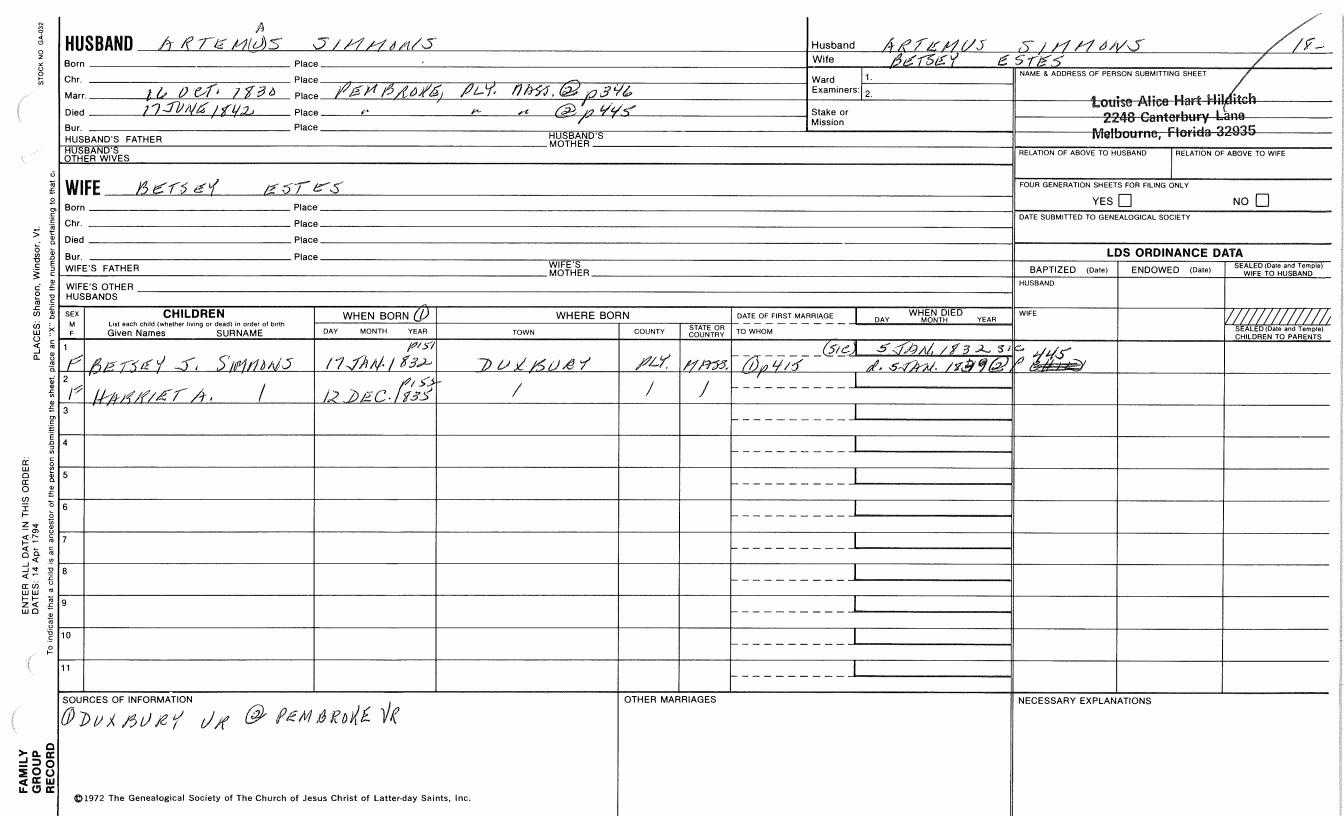 STOCK NO. GA-032
PLACES: Sharon, Windsor, Vt.
ENTER ALL DATA IN THIS ORDER:
DATES: 14 Apr 1794
To indicate that a child is an ancestor of the person submitting the sheet, place an "X" behind the number pertaining to that c.
FAMILY GROUP RECORD
A
HUSBAND ARTEMUS SIMMONS
Born Place
Chr. Place
Marr. 16 OCT. 1830 Place PEMBROKE, PLY. MASS. ② p346
Died 17 JUNE 1842 Place " " " ② p445
Bur. Place
HUSBAND'S FATHER HUSBAND'S MOTHER
HUSBAND'S OTHER WIVES
WIFE BETSEY ESTES
Born Place
Chr. Place
Died Place
Bur. Place
WIFE'S FATHER WIFE'S MOTHER
WIFE'S OTHER HUSBANDS
Husband ARTEMUS SIMMONS 18-
Wife BETSEY ESTES
Ward Examiners: 1.
2.
Stake or Mission
NAME & ADDRESS OF PERSON SUBMITTING SHEET
Louise Alice Hart Hilditch
2248 Canterbury Lane
Melbourne, Florida 32935
RELATION OF ABOVE TO HUSBAND RELATION OF ABOVE TO WIFE
FOUR GENERATION SHEETS FOR FILING ONLY
YES NO
DATE SUBMITTED TO GENEALOGICAL SOCIETY
LDS ORDINANCE DATA
BAPTIZED (Date) ENDOWED (Date) SEALED (Date and Temple) WIFE TO HUSBAND
HUSBAND
WIFE
SEALED (Date and Temple) CHILDREN TO PARENTS
SEX M F
CHILDREN
List each child (whether living or dead) in order of birth
Given Names SURNAME
WHEN BORN ①
DAY MONTH YEAR
WHERE BORN
TOWN COUNTY STATE OR COUNTRY
DATE OF FIRST MARRIAGE
TO WHOM
WHEN DIED
DAY MONTH YEAR
p151 (SIC) 5 JAN. 1832 SIC
1 F BETSEY J. SIMMONS 17 JAN. 1832 DUXBURY PLY. MASS. ① p415 d. 5 JAN. ② p 445
p152
2 F HARRIET A. / 12 DEC. 1835 / / /
3
4
5
6
7
8
9
10
11
SOURCES OF INFORMATION
① DUXBURY VR ② PEMBROKE VR
OTHER MARRIAGES
NECESSARY EXPLANATIONS
©1972 The Genealogical Society of The Church of Jesus Christ of Latter-day Saints, Inc.